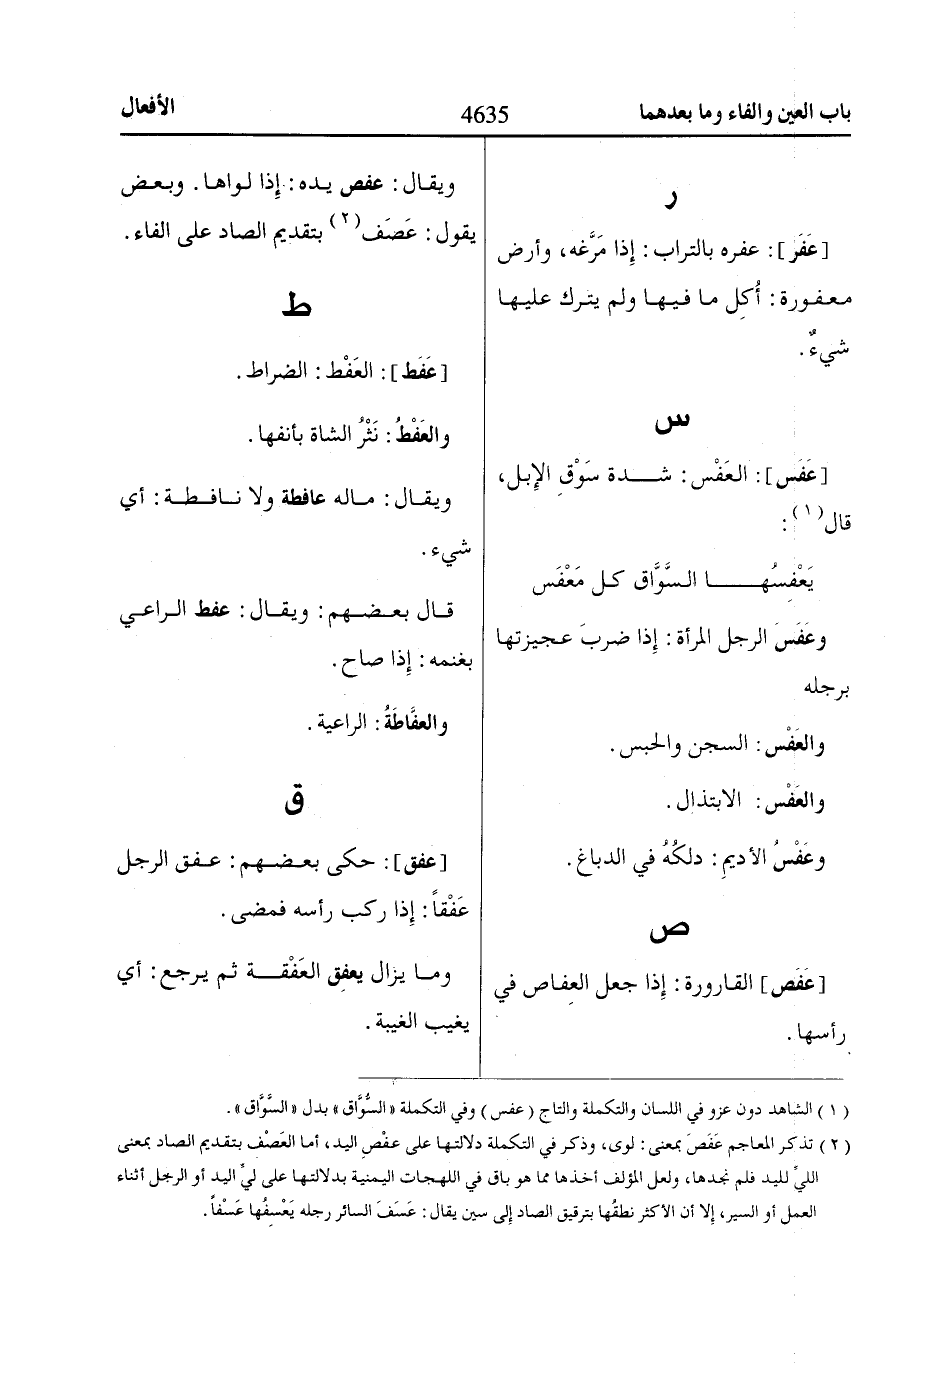 باب العين والفاء وما بعدهما
4635
الأفعال
ر
[عَفَر]: عفره بالتراب: إذا مَرَّغه، وأرض
معفورة: أُكل ما فيها ولم يترك عليها
شيءٌ.
س
[عَفَس]: العَفْس: شدة سَوْقِ الإبل،
قال(١):
يَعْفِسُها السَّوَّاق كل مَعْفَس
وعَفَسَ الرجل المرأة: إذا ضربَ عجيزتها
برجله
والعَفْس: السجن والحبس.
والعَفْس: الابتذال.
وعَفْسُ الأديمِ: دلكُهُ في الدباغ.
ص
[عَفَص] القارورة: إذا جعل العفاص في
رأسها.
ويقال: عفص يده: إذا لواها. وبعض
يقول: عَصَف(٢) بتقديم الصاد على الفاء.
ط
[عَفَط]: العَفْط: الضراط.
والعَفْطُ: نَثْرُ الشاة بأنفها.
ويقال: ماله عافطة ولا نافطة: أي
شيء.
قال بعضهم: ويقال: عفط الراعي
بغنمه: إذا صاح.
والعفَّاطَةُ: الراعية.
ق
[عفق]: حكى بعضهم: عفق الرجل
عَفْقاً: إذا ركب رأسه فمضى.
وما يزال يعفِق العَفْقة ثم يرجع: أي
يغيب الغيبة.
(١) الشاهد دون عزو في اللسان والتكملة والتاج (عفس) وفي التكملة «السُّوَّاق» بدل «السَّوَّاق».
(٢) تذكر المعاجم عَفَصَ بمعنى: لوى، وذكر في التكملة دلالتها على عفْصِ اليد، أما العَصْف بتقديم الصاد بمعنى
الليِّ لليد فلم نجدها، ولعل المؤلف أخذها مما هو باق في اللهجات اليمنية بدلالتها على ليِّ اليد أو الرجل أثناء
العمل أو السير، إلا أن الأكثر نطقُها بترقيق الصاد إلى سين يقال: عَسَفَ السائر رجله يَعْسِفُها عَسْفاً.